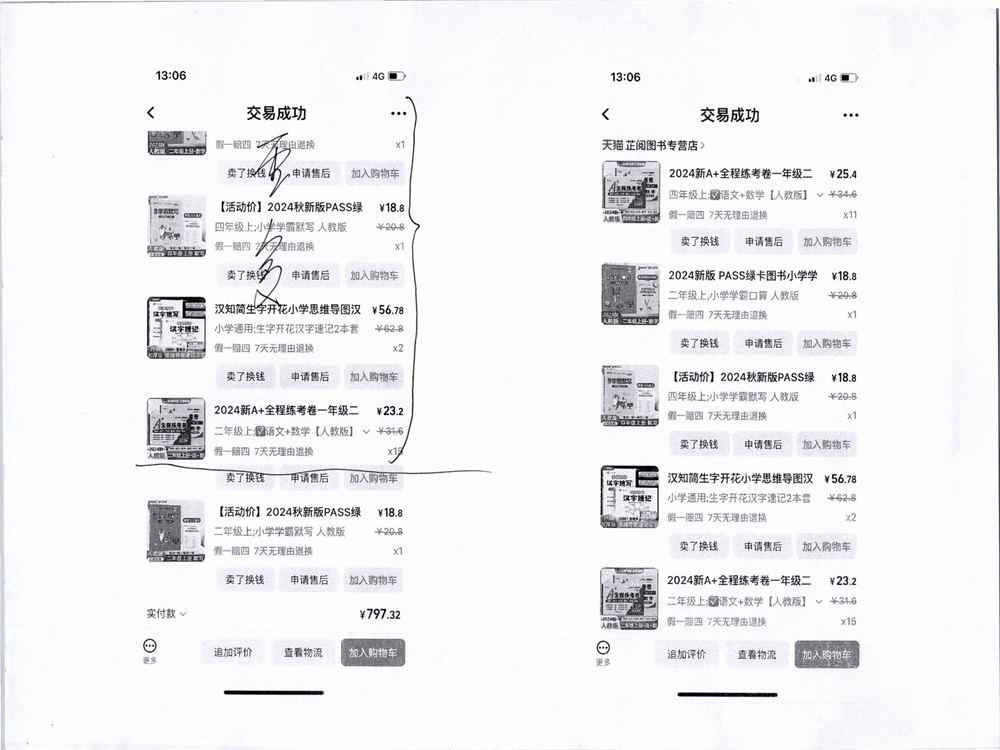 13:06
4G
交易成功
假一赔四 7天无理由退换
x1
卖了换钱 申请售后 加入购物车
【活动价】2024秋新版PASS绿 ¥18.8
四年级上;小学学霸默写 人教版 ¥20.8
假一赔四 7天无理由退换 x1
卖了换钱 申请售后 加入购物车
汉知简生字开花小学思维导图汉 ¥56.78
小学通用;生字开花汉字速记2本套 ¥62.8
假一赔四 7天无理由退换 x2
卖了换钱 申请售后 加入购物车
2024新A+全程练考卷一年级二 ¥23.2
二年级上;☑语文+数学【人教版】 ¥31.6
假一赔四 7天无理由退换 x15
卖了换钱 申请售后 加入购物车
【活动价】2024秋新版PASS绿 ¥18.8
二年级上;小学学霸默写 人教版 ¥20.8
假一赔四 7天无理由退换 x1
卖了换钱 申请售后 加入购物车
实付款 ¥797.32
更多 追加评价 查看物流 加入购物车
重复
13:06
4G
交易成功
天猫 芷阅图书专营店
2024新A+全程练考卷一年级二 ¥25.4
四年级上;☑语文+数学【人教版】 ¥34.6
假一赔四 7天无理由退换 x11
卖了换钱 申请售后 加入购物车
2024新版 PASS绿卡图书小学学 ¥18.8
二年级上;小学学霸口算 人教版 ¥20.8
假一赔四 7天无理由退换 x1
卖了换钱 申请售后 加入购物车
【活动价】2024秋新版PASS绿 ¥18.8
四年级上;小学学霸默写 人教版 ¥20.8
假一赔四 7天无理由退换 x1
卖了换钱 申请售后 加入购物车
汉知简生字开花小学思维导图汉 ¥56.78
小学通用;生字开花汉字速记2本套 ¥62.8
假一赔四 7天无理由退换 x2
卖了换钱 申请售后 加入购物车
2024新A+全程练考卷一年级二 ¥23.2
二年级上;☑语文+数学【人教版】 ¥31.6
假一赔四 7天无理由退换 x15
更多 追加评价 查看物流 加入购物车